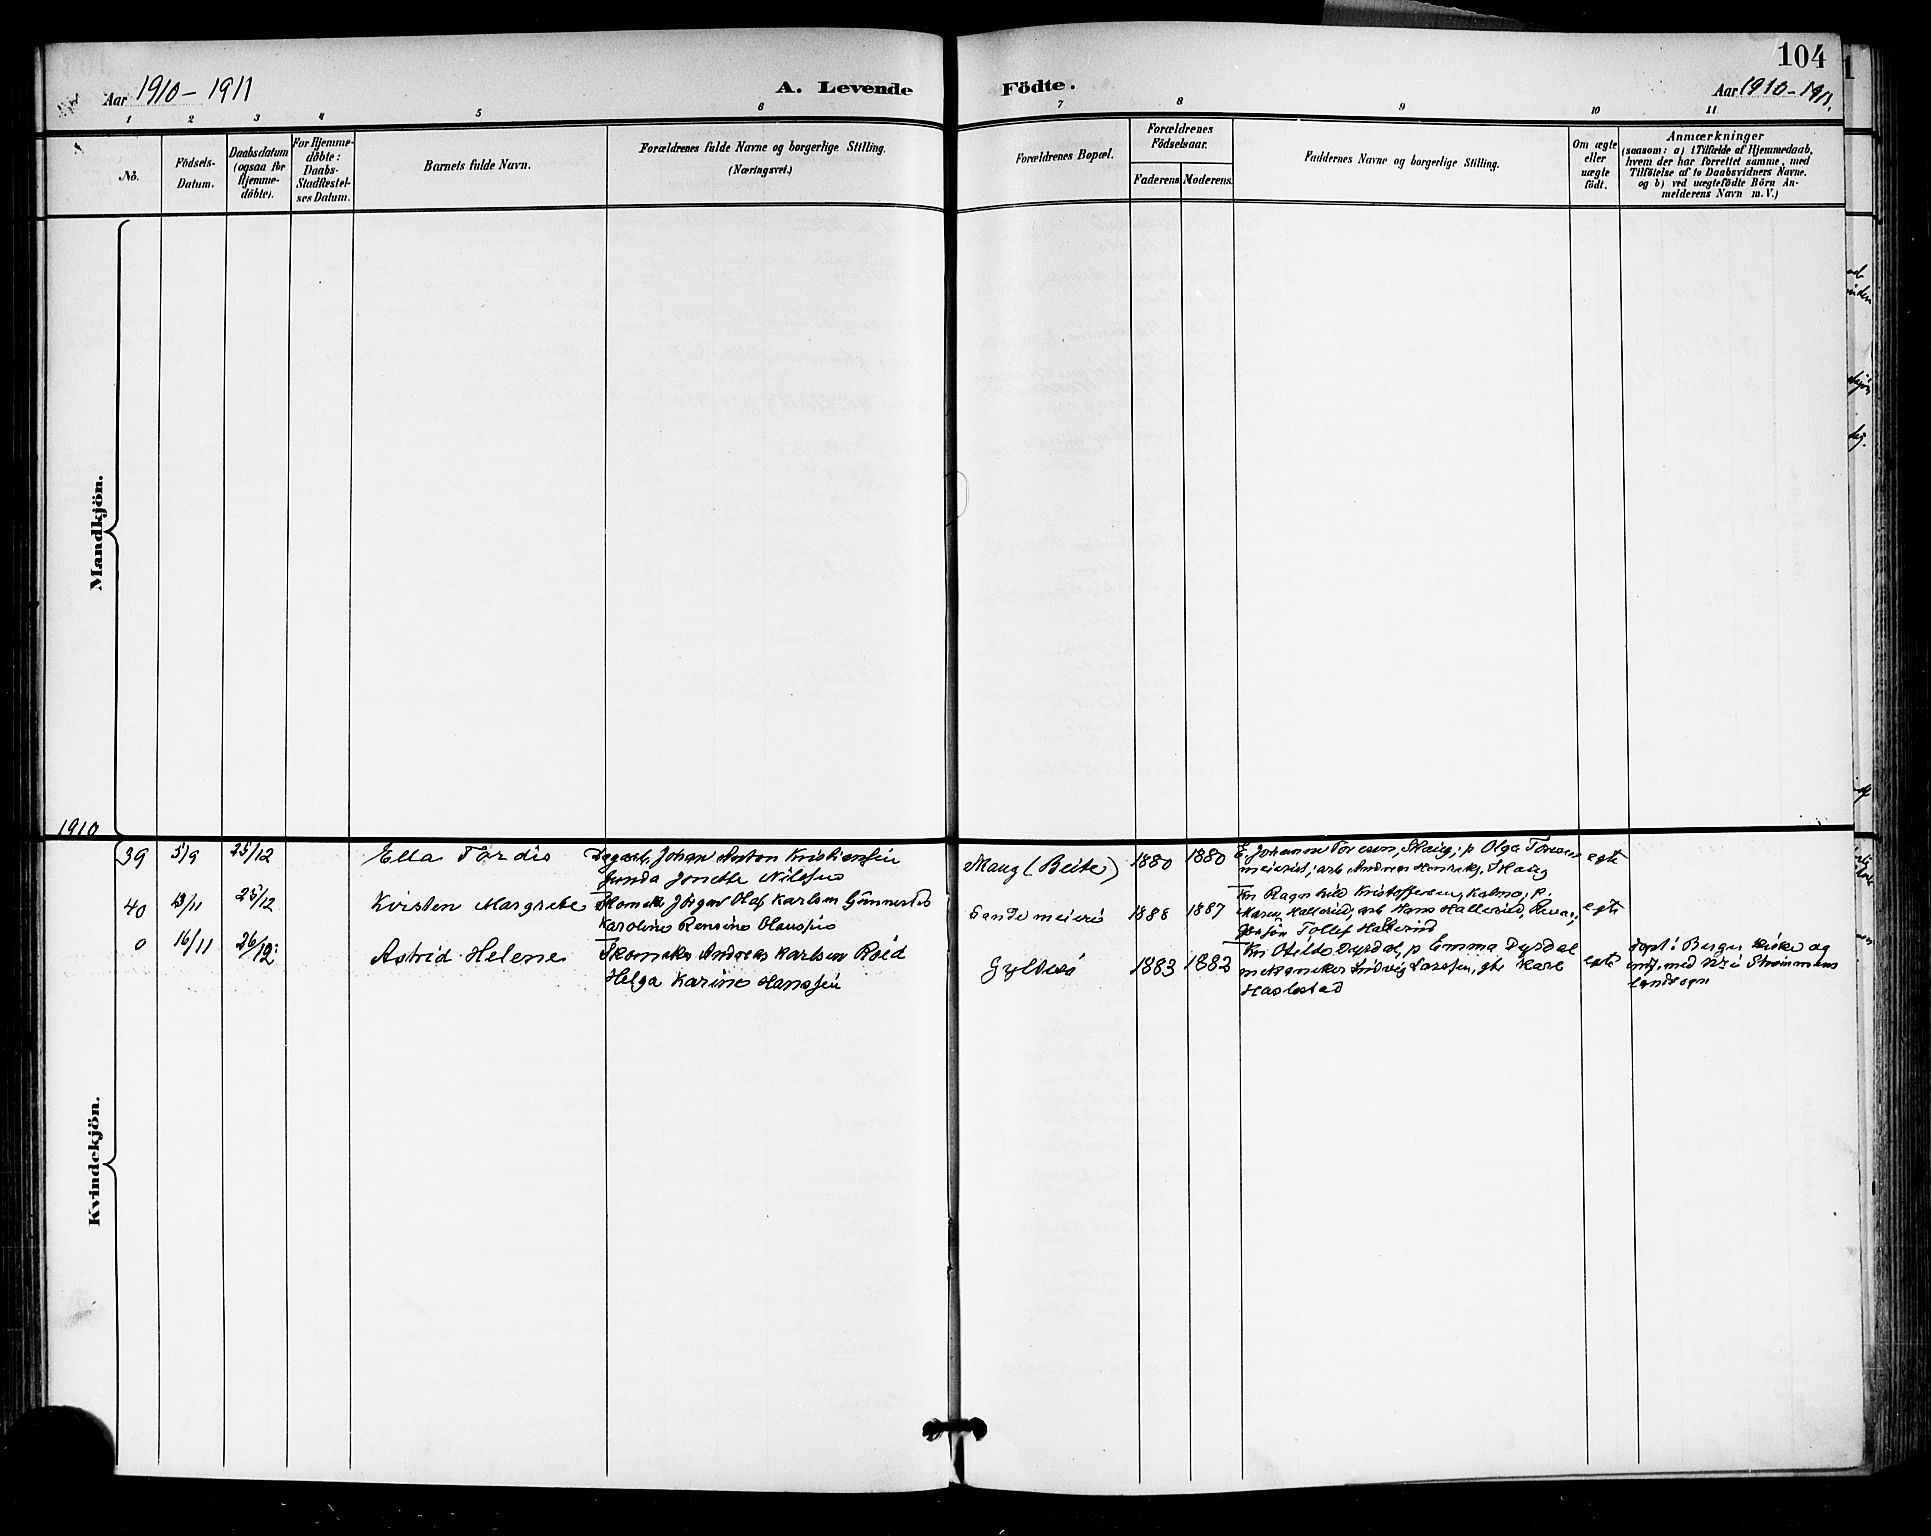 104
Aar 1910-1911
A. Levende Födte.
Aar 1910-1911.
1 2 3 4 5 6 7 8 9 10 11
No.
Födsels-Datum.
Daabsdatum (ogsaa för Hjemme-döbte).
For Hjemme-döbte: Daabs-Stadfæstel-ses Datum.
Barnets fulde Navn.
Forældrenes fulde Navne og borgerlige Stilling.
(Næringsvei.)
Forældrenes Bopæl.
Forældrenes Födselsaar.
Faderens. Moderens.
Faddernes Navne og borgerlige Stilling.
Om ægte eller uægte födt.
Anmærkninger
(saasom: a) i Tilfælde af Hjemmedaab,
hvem der har forrettet samme, med
Tilföielse af to Daabsvidners Navne.
og b) ved uægtefödte Börn An-
melderens Navn m. V.)
Mandkjön.
1910
Kvindekjön.
39 5/9 25/12 Ella Tordis
Dagarb. Johan Anton Kristiansen
Junda Jonette Nilssen
Maug (Beite) 1880 1880
E. Johanne Toresen, Skaug; p Olga Toresen
meieriet; arb Andreas Henriks, Skaug
egte
40 13/11 25/12 Kirsten Margrete
Jörgen Olaf Karlsen Gunnestad
Karoline Rensine Olaussen
Sande meieri 1888 1887
Km Ragnhild Kristoffersen, Holmo, p.
Maren Hallerud, arb Hans Hallerud,
Tollef Hallerud
egte
0 16/11 26/12: Astrid Helene
Skomaker Andreas Karlsen Röed
Helga Karine Hanssen
Gyltesö 1883 1882
Km Otilde Dyrdal, p Emma Dyrdal
Ludvig Larssen, gb Karl
Haslestad
egte
döpt i Berger kirke og
indf. med No i Strömmens
landsogn